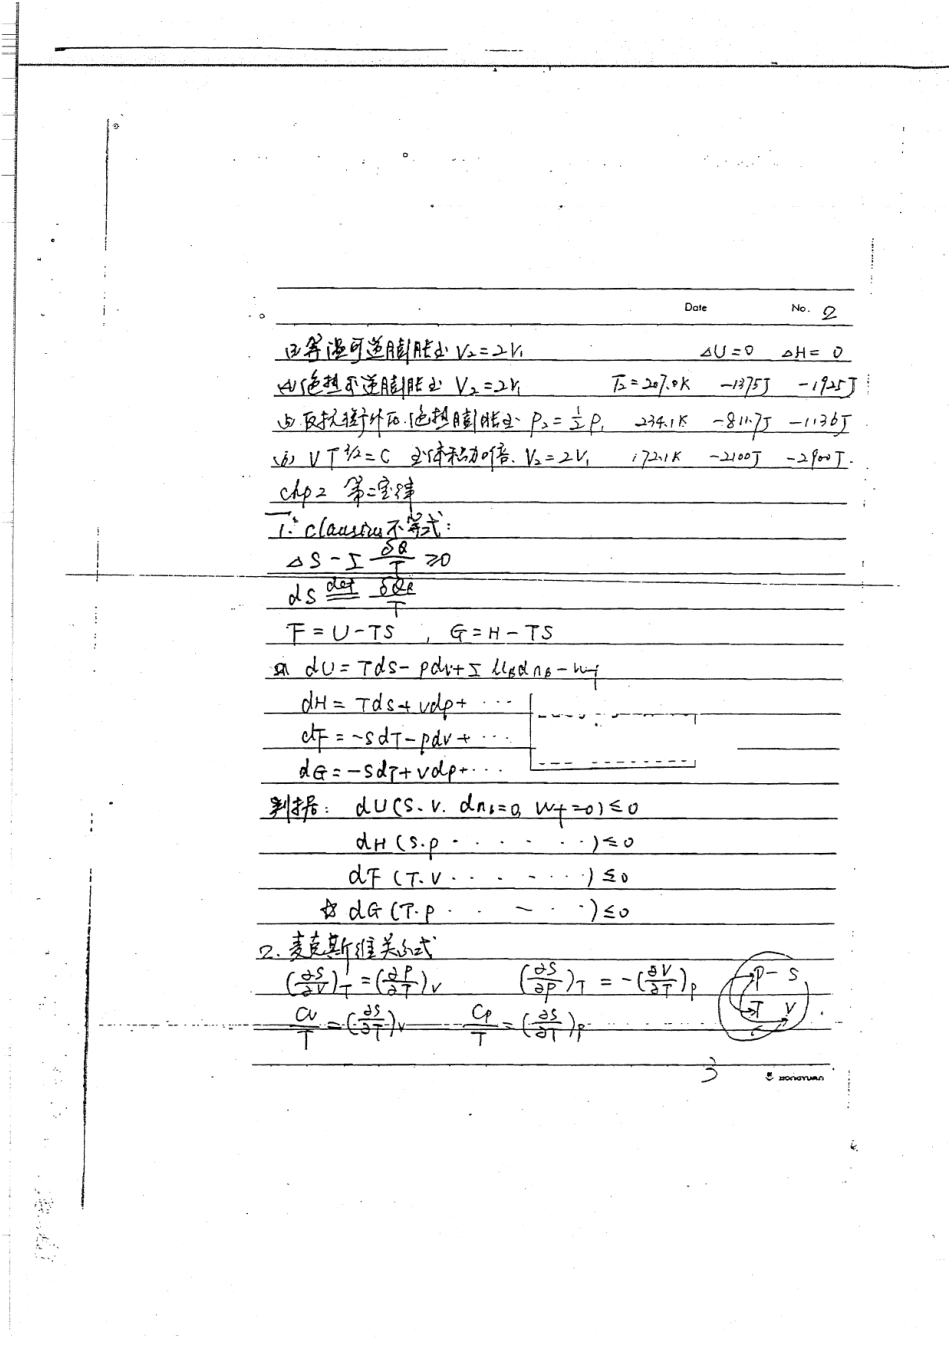 Date No. 2
(3) 等温可逆膨胀至 V₂=2V₁ ΔU=0 ΔH=0
(4) 绝热可逆膨胀至 V₂=2V₁ T₂=207.0K -1375J -1925J
(5) 反抗恒外压绝热膨胀至 P₂=½P₁ 234.1K -811.7J -1136J
(6) VT^{3/2}=C 至体积加倍. V₂=2V₁ 172.1K -2100J -2900J.
chp 2 第二定律
1. clausius不等式:
ΔS-Σ δQ/T ≥0
dS def δQR/T
F=U-TS , G=H-TS
dU=TdS-pdv+Σ μBdnB-wf
dH=Tds+vdp+ ...
dF=-sdT-pdv+ ...
dG=-SdT+vdp+ ...
判据: dU(S.V. dnB=0, Wf=0)≤0
dH(S.p ....)≤0
dF(T.V ....)≤0
☆ dG(T.P ....)≤0
2. 麦克斯维关系式
(∂S/∂V)T=(∂P/∂T)V (∂S/∂P)T=-(∂V/∂T)P P-S
Cv/T=(∂S/∂T)V Cp/T=(∂S/∂T)P T V
3